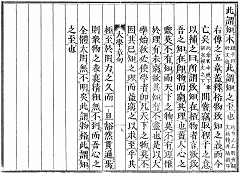 此謂知本程子曰衍文也此謂知之至也
右傳之五章蓋釋格物致知之義而今
亡矣閒嘗竊取程子之意
以補之曰所謂致知在格物者言欲致
吾之知在即物而窮其理也蓋人心之
靈莫不有知而天下之物莫不有理惟
於理有未窮故其知有不盡也是以大
學始教必使學者即凡天下之物莫不
因其已知之理而益窮之以求至乎其
大學章句
極至於用力之久而一旦豁然貫通焉
則衆物之表裏精粗無不到而吾心之
全體大用無不明矣此謂物格此謂知
之至也